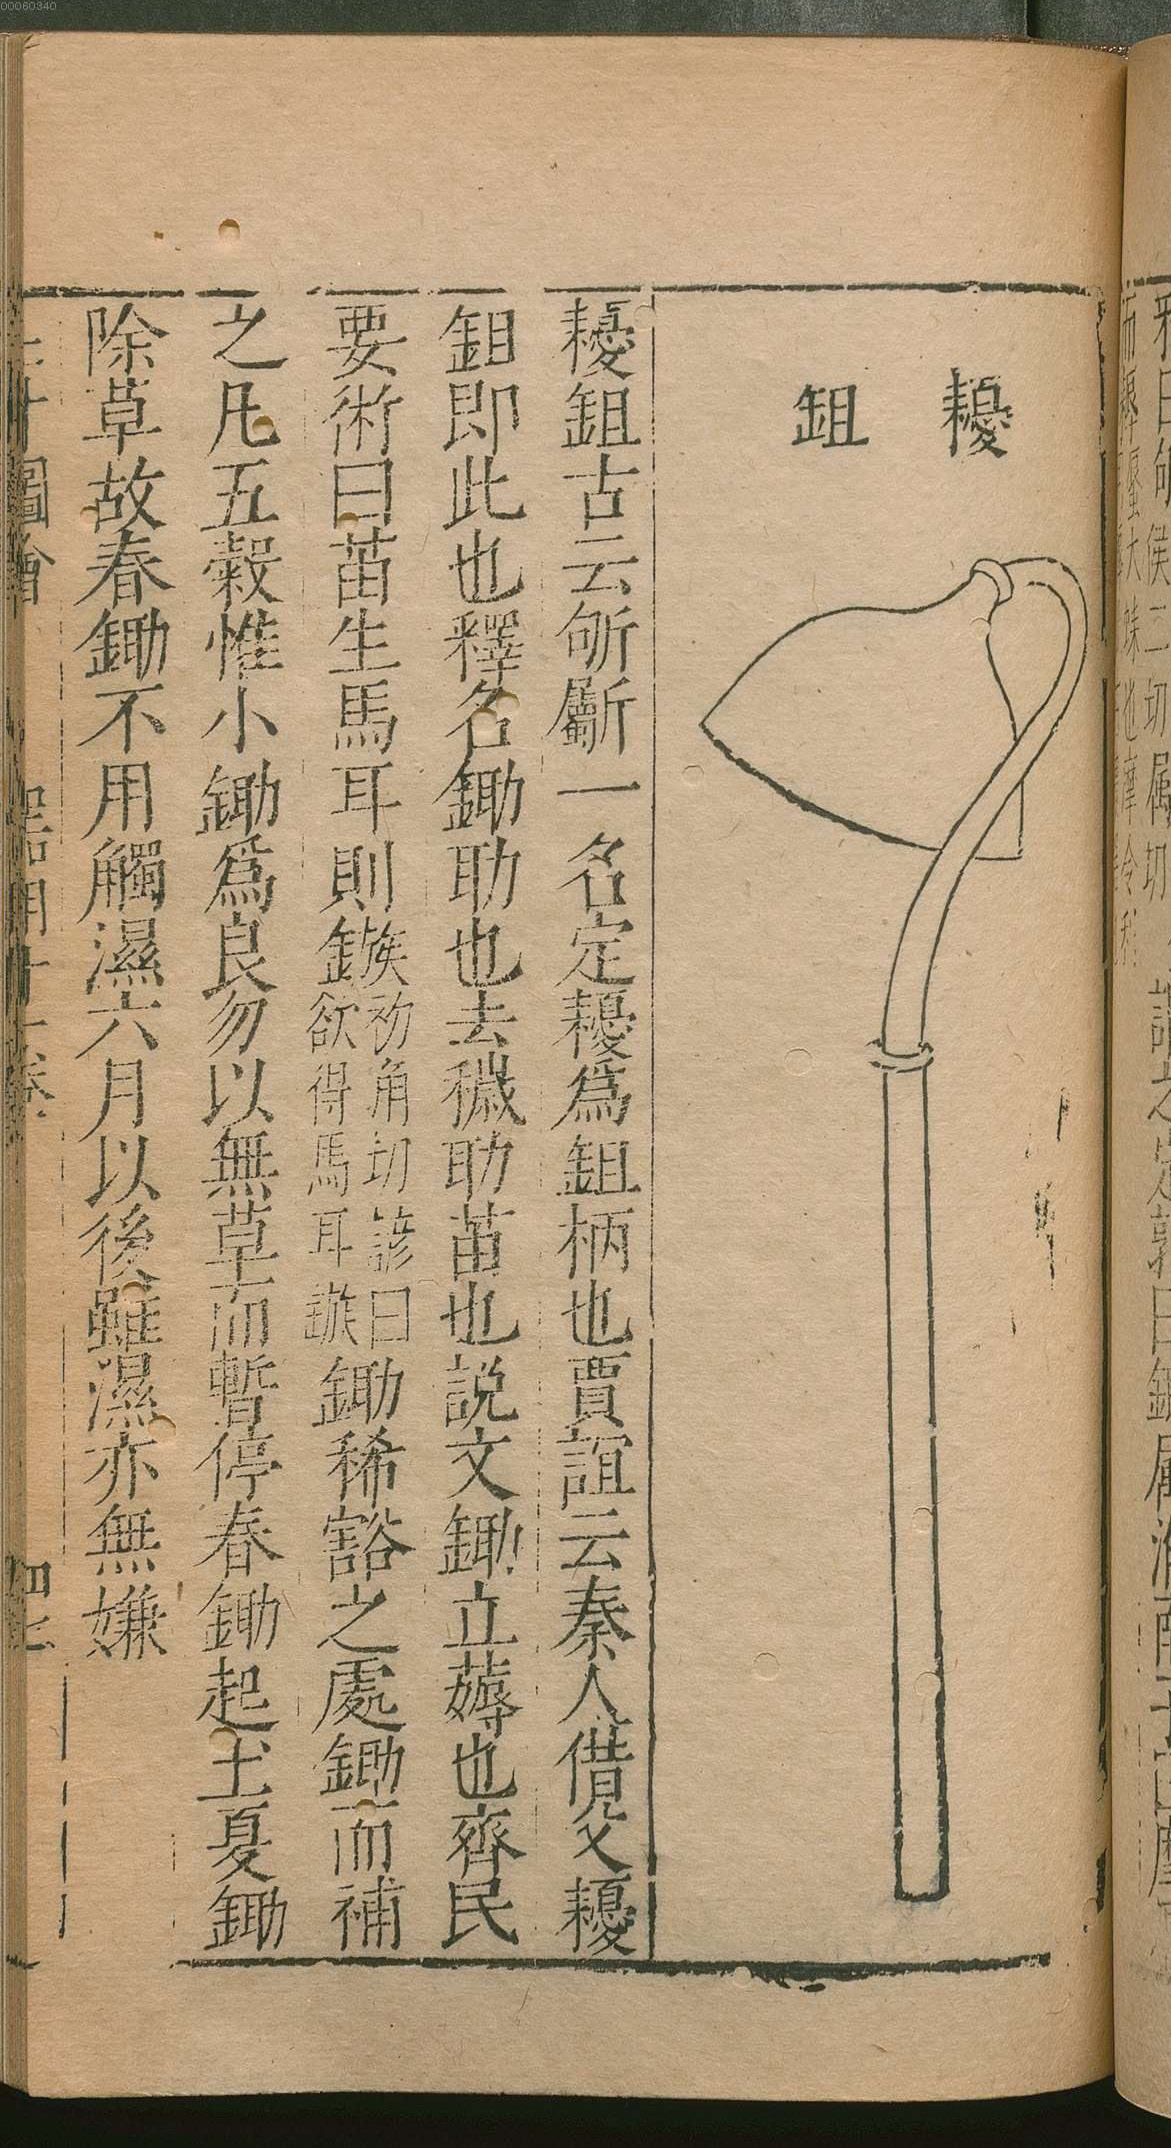 00060340
耰 鉏
耰鉏古云斫斸一名定耰為鉏柄也賈誼云秦人借父耰
鉏即此也釋名鋤助也去穢助苗也説文鋤立薅也齊民
要術曰苗生馬耳則鏃初角切諺曰欲得馬耳鏃鋤稀豁之處鋤而補
之凡五穀惟小鋤為良勿以無草而暫停春鋤起土夏鋤
除草故春鋤不用觸濕六月以後雖濕亦無嫌
圖會 器用十一卷 四七